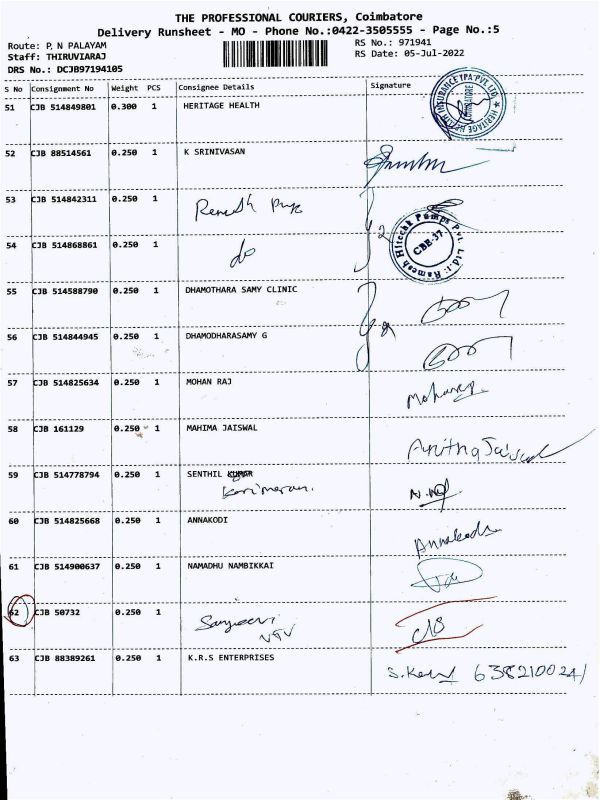 THE PROFESSIONAL COURIERS, Coimbatore
Delivery Runsheet - MO - Phone No.:0422-3505555 - Page No.:5
Route: P, N PALAYAM RS No.: 971941
Staff: THIRUVIARAJ RS Date: 05-Jul-2022
DRS No.: DCJB97194105
S No Consignment No Weight PCS Consignee Details Signature
51 CJB 514849801 0.300 1 HERITAGE HEALTH
HERITAGE HEALTH INSURANCE TPA PVT. LTD. COIMBATORE
52 CJB 88514561 0.250 1 K SRINIVASAN
53 CJB 514842311 0.250 1 Ramesh 2
Ramesh Hitechh Pumps Pvt. Ltd. CBE-37.
54 CJB 514868861 0.250 1 do
55 CJB 514588790 0.250 1 DHAMOTHARA SAMY CLINIC
56 CJB 514844945 0.250 1 DHAMODHARASAMY G
57 CJB 514825634 0.250 1 MOHAN RAJ Mohanraj
58 CJB 161129 0.250 1 MAHIMA JAISWAL Anitha Jaiswal
59 CJB 514778794 0.250 1 SENTHIL KUMAR
60 CJB 514825668 0.250 1 ANNAKODI Annakodi
61 CJB 514900637 0.250 1 NAMADHU NAMBIKKAI
62 CJB 50732 0.250 1 Sanjeevi
63 CJB 88389261 0.250 1 K.R.S ENTERPRISES 6382100241